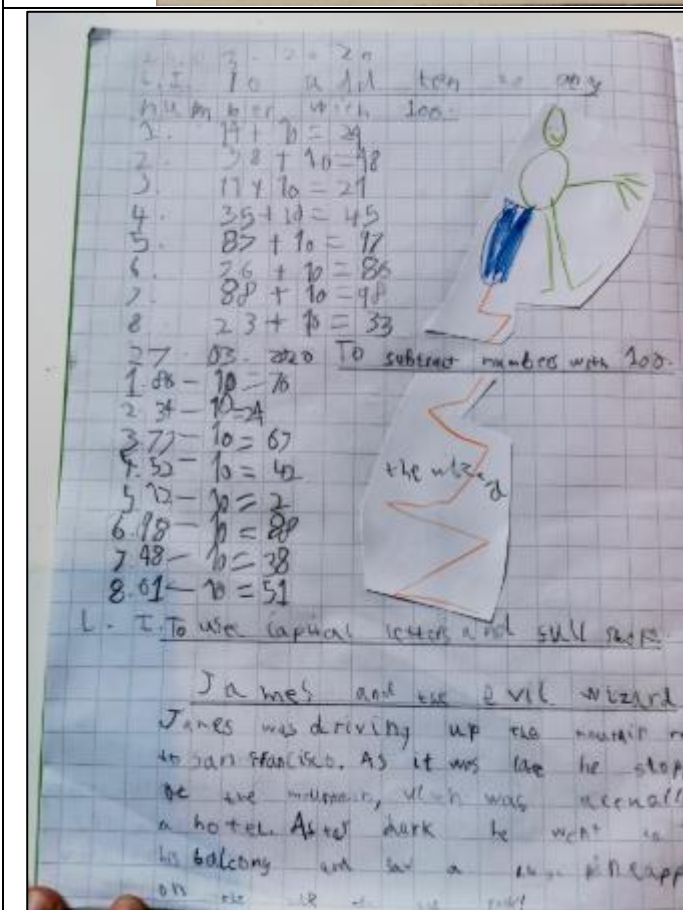 3. 2020
L.I. To add ten to any
number with 100.
1. 14 + 10 = 24
2. 38 + 10 = 48
3. 11 + 10 = 21
4. 35 + 10 = 45
5. 87 + 10 = 97
6. 76 + 10 = 86
7. 88 + 10 = 98
8. 23 + 10 = 33
27. 03. 2020 To subtract numbers with 100.
1. 86 - 10 = 76
2. 34 - 10 = 24
3. 77 - 10 = 67
4. 52 - 10 = 42
5. 12 - 10 = 2
6. 98 - 10 = 88
7. 48 - 10 = 38
8. 61 - 10 = 51
the wizard
L. I. To use capital letters and full stops.
James and the evil wizard
James was driving up the mountain
to San Francisco. As it was late he stop
the mountain, which was
a hotel. After dark he went
his balcony and saw a pineapp
on the